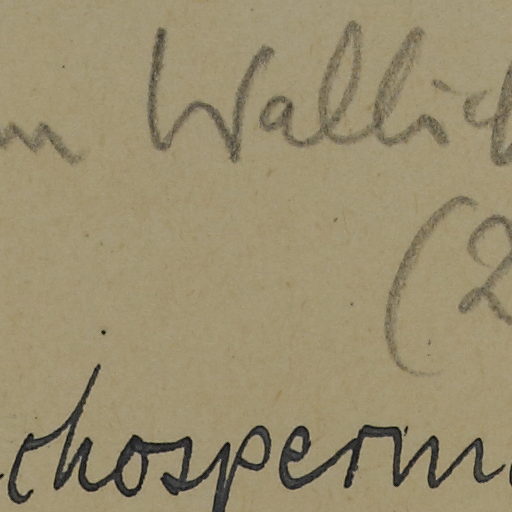 m Wallich
(2
chosperm